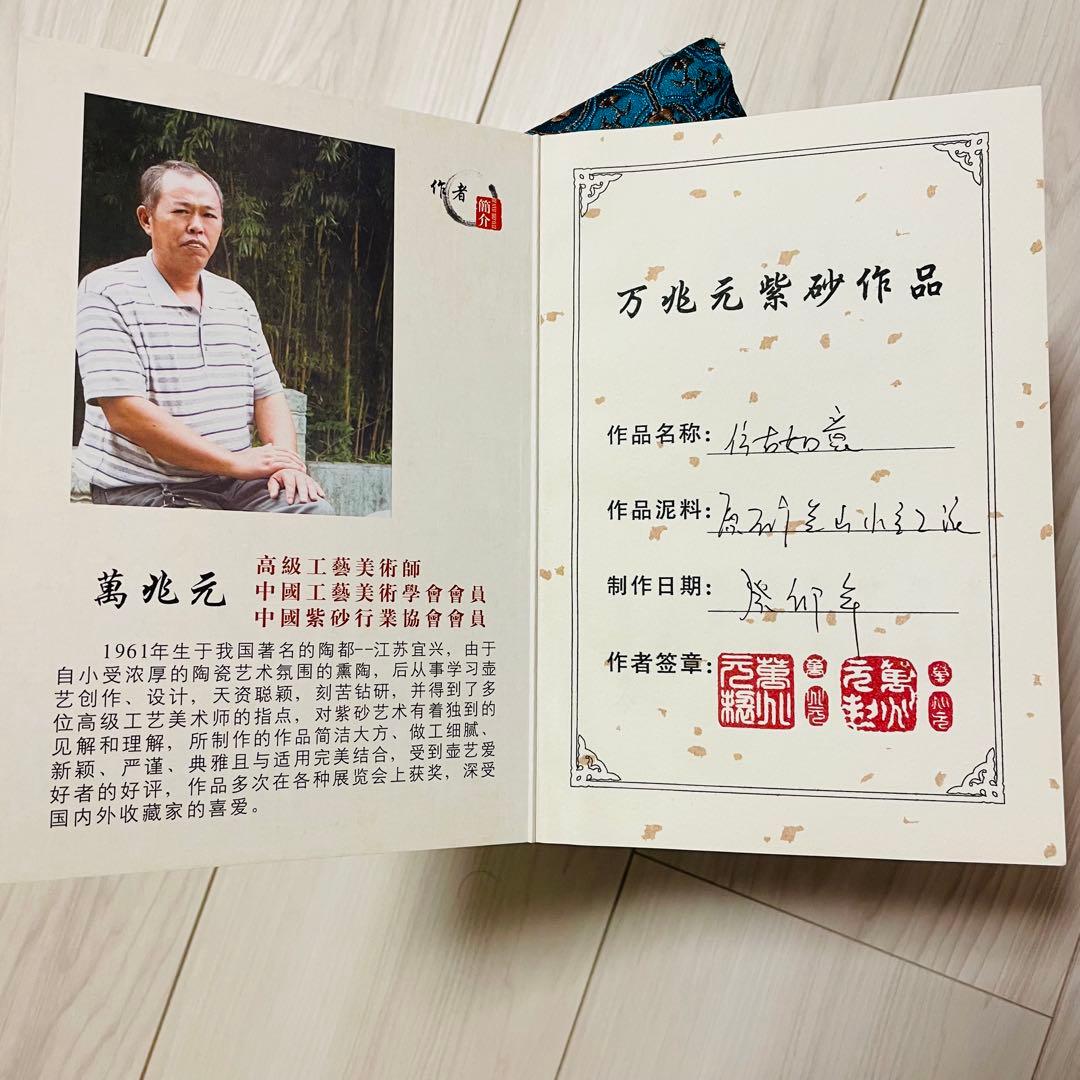 作者
简介
萬兆元
高級工藝美術師
中國工藝美術學會會員
中國紫砂行業協會會員
1961年生于我国著名的陶都--江苏宜兴，由于
自小受浓厚的陶瓷艺术氛围的熏陶，后从事学习壶
艺创作、设计，天资聪颖，刻苦钻研，并得到了多
位高级工艺美术师的指点，对紫砂艺术有着独到的
见解和理解，所制作的作品简洁大方、做工细腻、
新颖、严谨、典雅且与适用完美结合，受到壶艺爱
好者的好评，作品多次在各种展览会上获奖，深受
国内外收藏家的喜爱。
万兆元紫砂作品
作品名称：仿古如意
作品泥料：原矿
制作日期：癸卯年
作者签章：